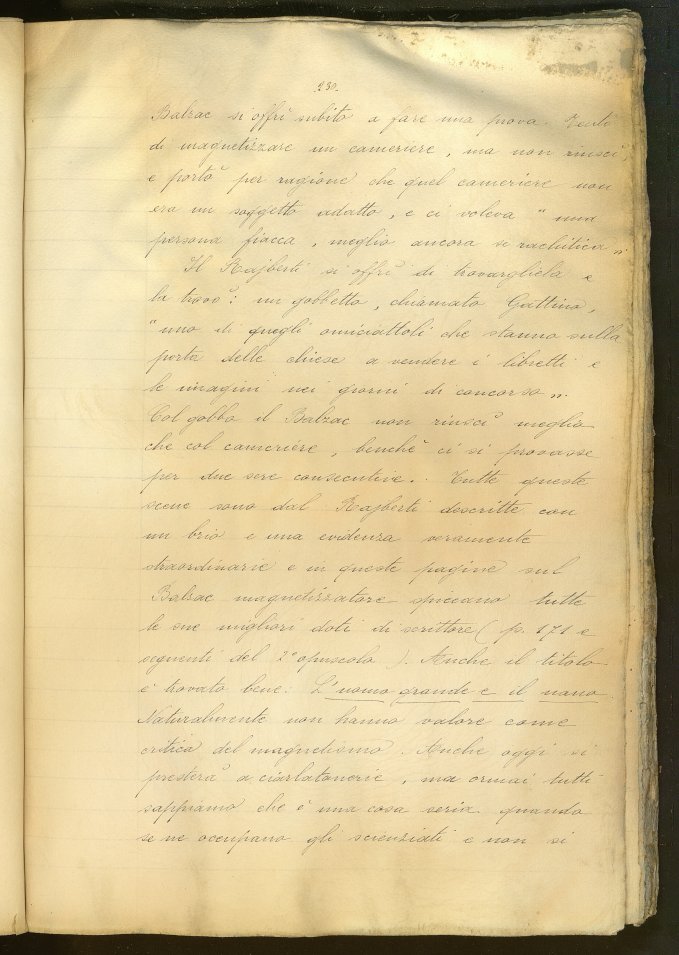 230.
Balzac si offrì subito a fare una prova. Tentò
di magnetizzare un cameriere, ma non riuscì,
e portò per ragione che quel cameriere non
era un soggetto adatto, e ci voleva " una
persona fiacca, meglio ancora se rachitica „
Il Rajberti si offrì di trovargliela e
la trovò: un gobbetto, chiamato Gattino,
" uno di quegli omiciattoli che stanno sulla
porta delle chiese a vendere i libretti e
le imagini nei giorni di concorso „.
Col gobbo il Balzac non riuscì meglio
che col cameriere, benchè ci si provasse
per due sere consecutive. Tutte queste
scene sono dal Rajberti descritte con
un brio e una evidenza veramente
straordinarie e in queste pagine sul
Balzac magnetizzatore spiccano tutte
le sue migliori doti di scrittore ( p. 171 e
seguenti del 2° opuscolo ). Anche il titolo
è trovato bene: L'uomo grande e il nano.
Naturalmente non hanno valore come
critica del magnetismo. Anche oggi si
presterà a ciarlatanerie, ma ormai tutti
sappiamo che è una cosa seria quando
se ne occupano gli scienziati e non si